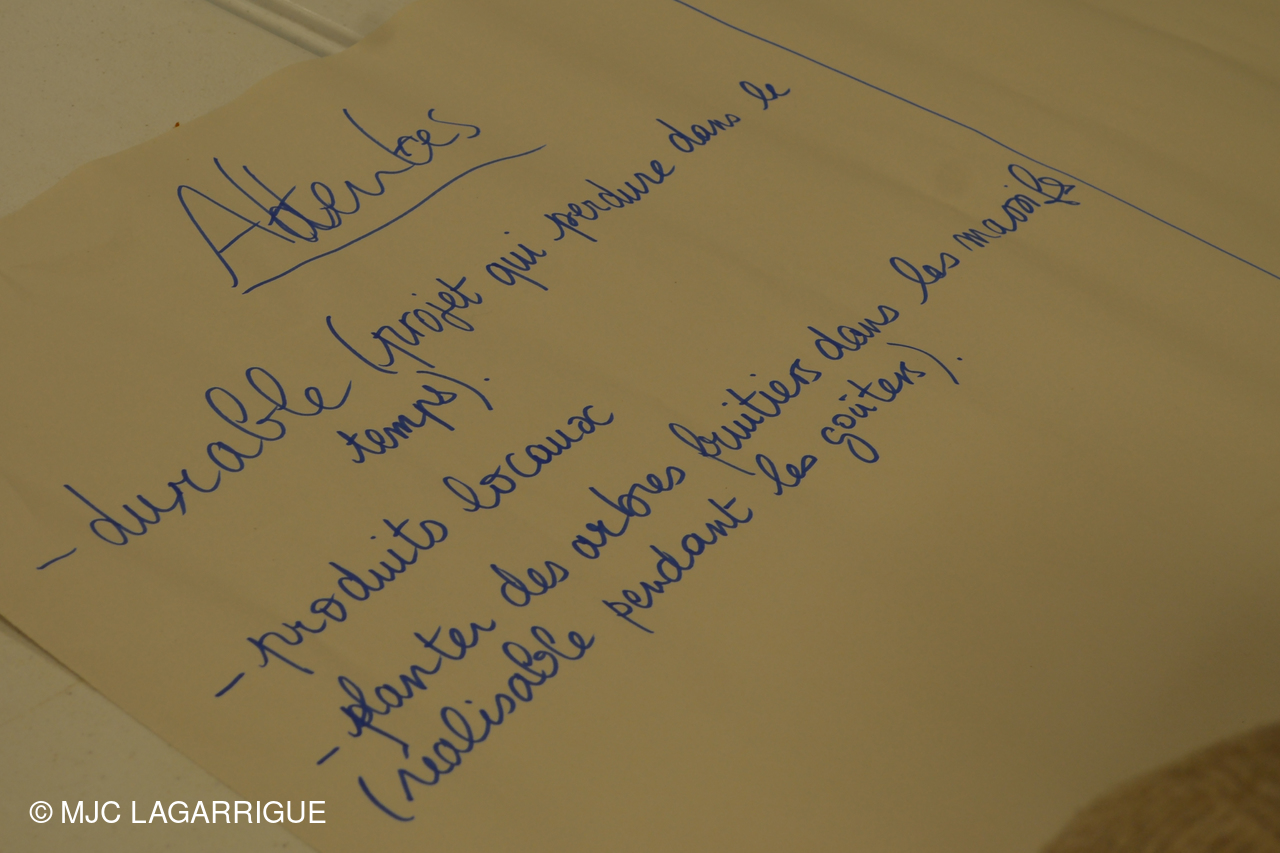 Attentes
- durable (projet qui perdure dans le
temps).
- produits locaux
- planter des arbres fruitiers dans les massifs
(réalisable pendant les goûters).
© MJC LAGARRIGUE